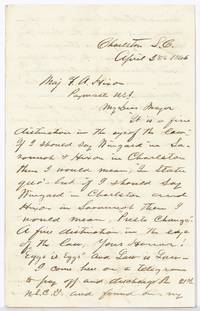 Charleston S.C.
April 28th 1866
Maj F. A. Hixon
Paymast U.S.A.
My Dear Major
"It is a fine
distinction in the eye of the law"
If I should say Wingard in Sa-
vannah & Hixon in Charleston
then I would mean, "In Statu
quo". But if I should say
Wingard in Charleston and
Hixon in Savannah then I
would mean, Presto Change.
A fine distinction in the edge
of the law, Your Honor!
"Eggs is Eggs" and Law is Law—
I came here on a telegram
to pay off and discharge the 21st
U.S.C.T. and found on my